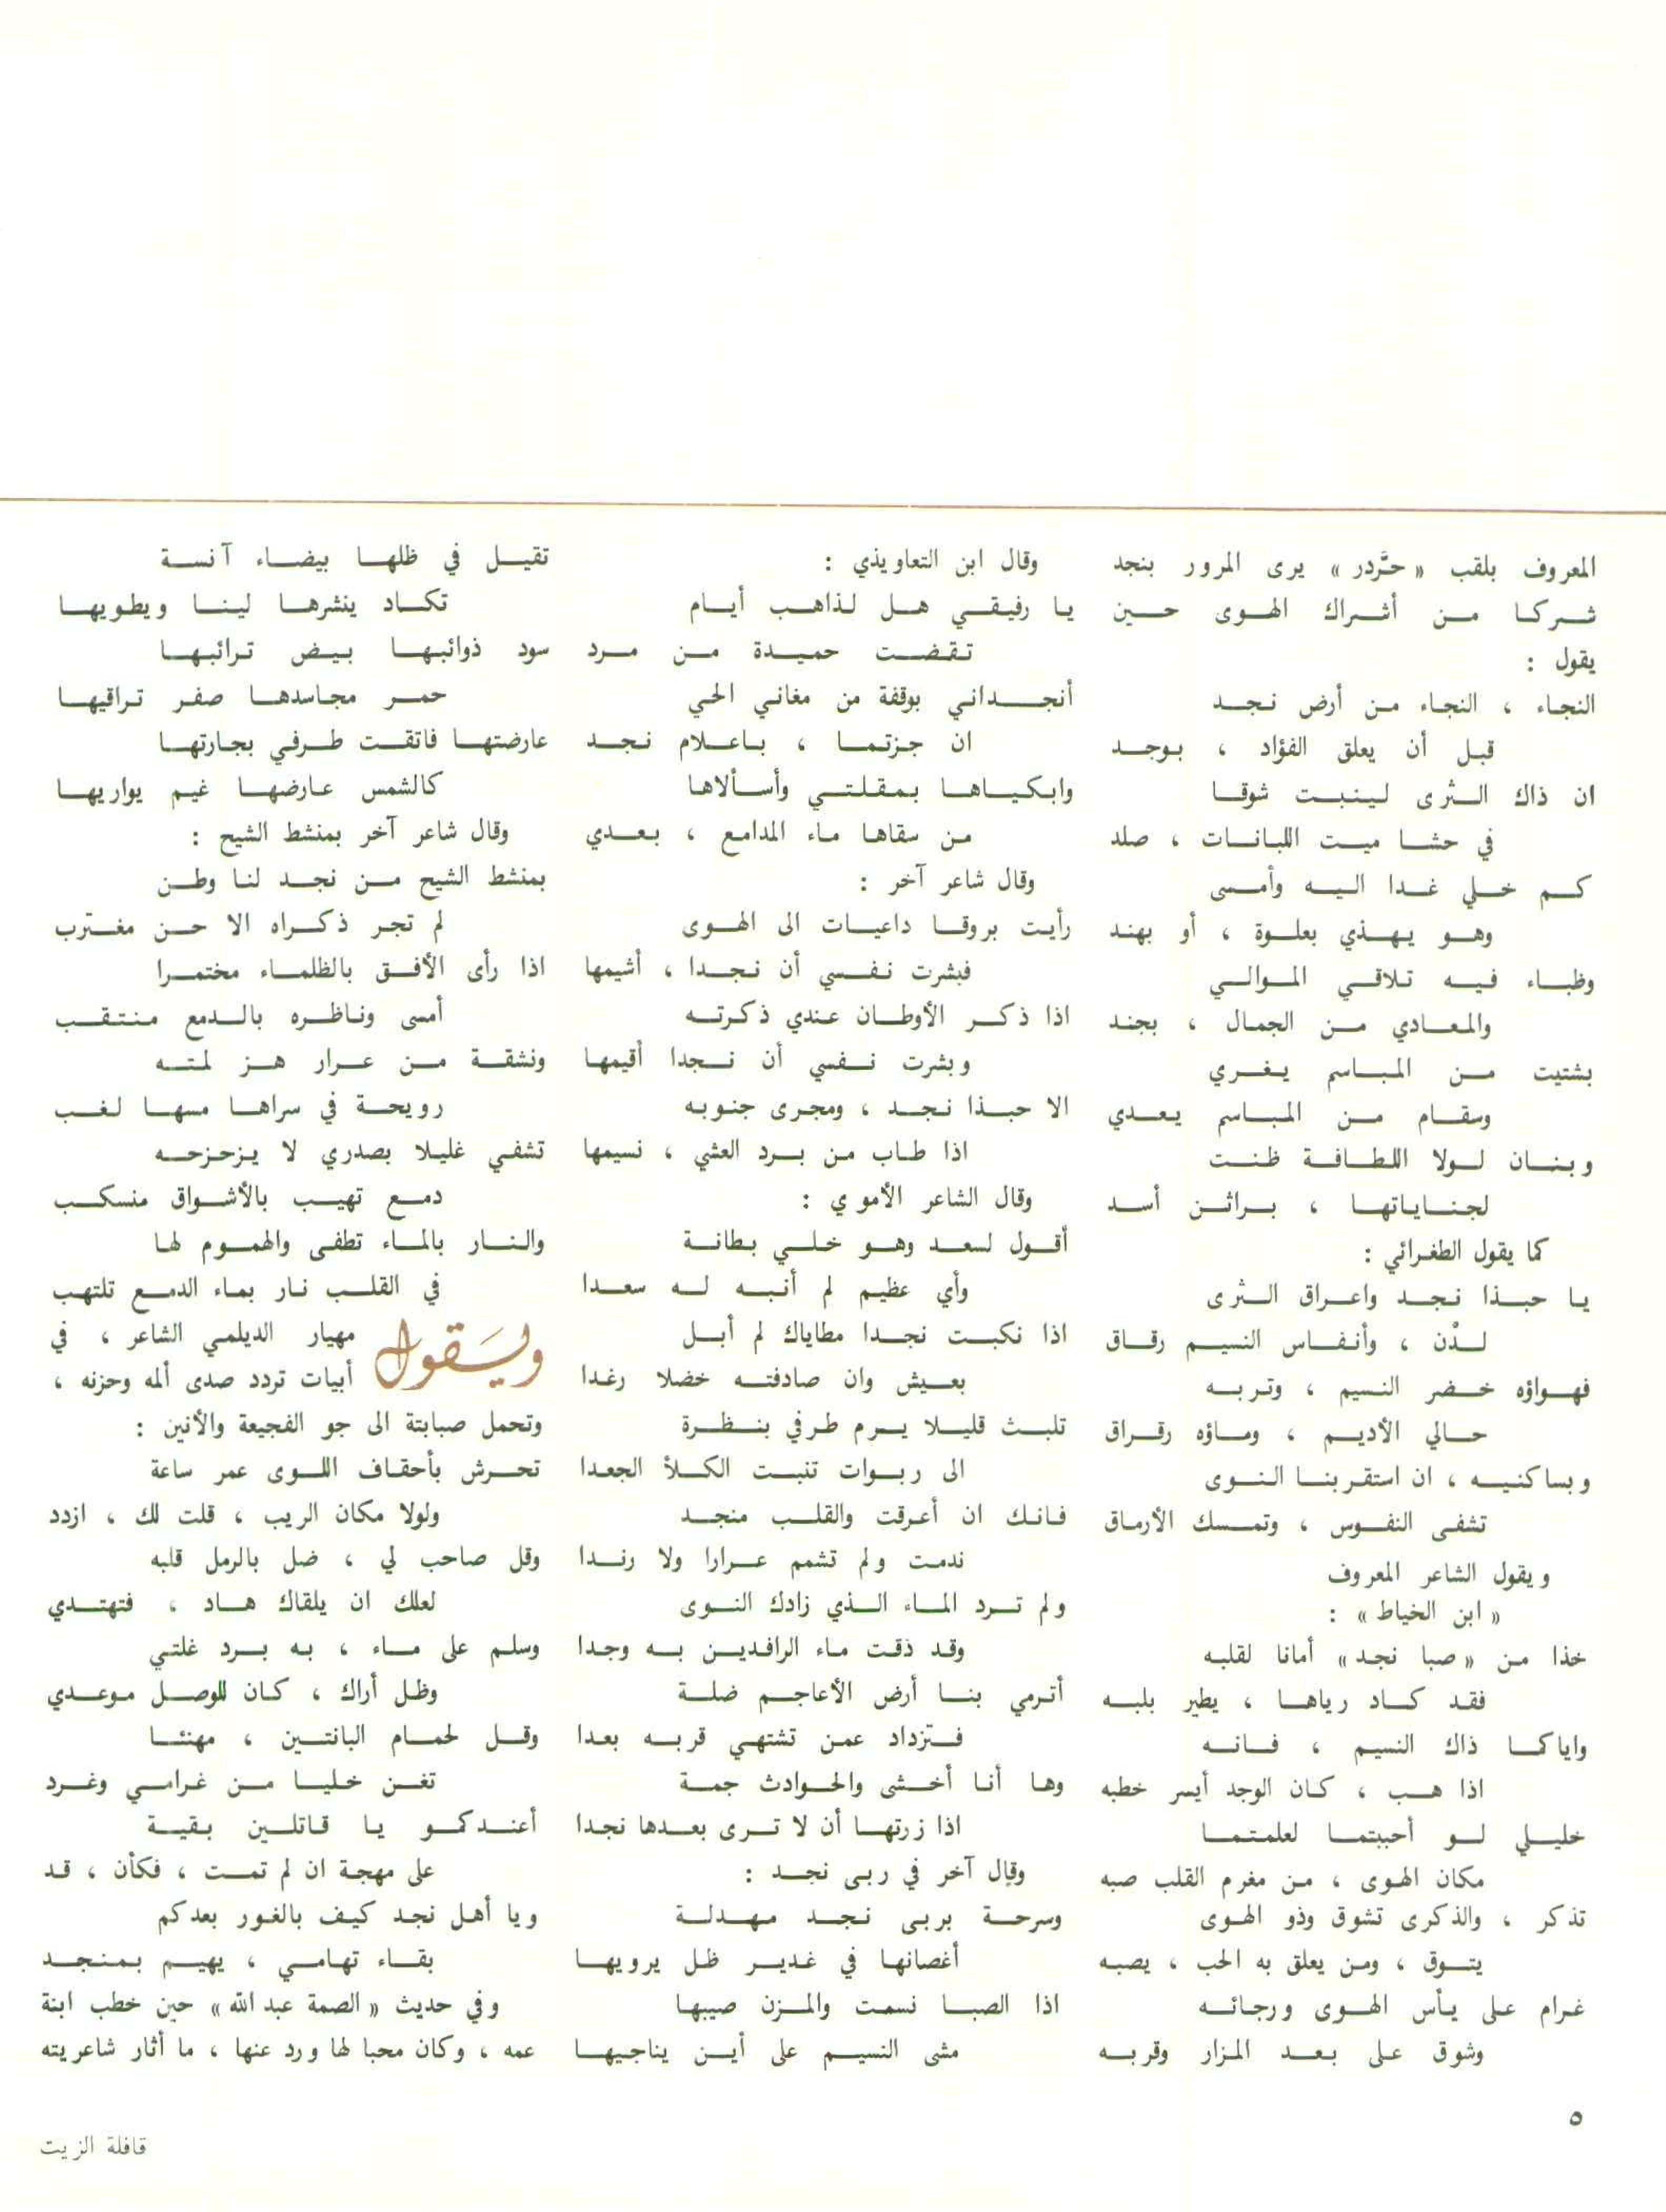 المعروف بلقب « حرَّدر » يرى المرور بنجد
شركا من أشراك الهوى حين
يقول :
النجاء ، النجاء من أرض نجد
قبل أن يعلق الفؤاد ، بوجد
ان ذاك الثرى لينبت شوقا
في حشا ميت اللبانات ، صلد
كم خلي غدا اليه وأمسى
وهو يهذي بعلوة ، أو بهند
وظباء فيه تلاقي الموالي
والمعادي من الجمال ، بجند
بشتيت من المباسم يغري
وسقام من المباسم يعدي
وبنان لولا اللطافة ظنت
لجناياتها ، براثن أسد
كما يقول الطغرائي :
يا حبذا نجد واعراق الثرى
لدْن ، وأنفاس النسيم رقاق
فهواؤه خضر النسيم ، وتربه
حالي الأديم ، وماؤه رقراق
وبساكنيه ، ان استقربنا النوى
تشفى النفوس ، وتمسك الأرماق
ويقول الشاعر المعروف
« ابن الخياط » :
خذا من « صبا نجد » أمانا لقلبه
فقد كاد رياها ، يطير بلبه
واياكما ذاك النسيم ، فانه
اذا هب ، كان الوجد أيسر خطبه
خليلي لو أحببتما لعلمتما
مكان الهوى ، من مغرم القلب صبه
تذكر ، والذكرى تشوق وذو الهوى
يتوق ، ومن يعلق به الحب ، يصبه
غرام على يأس الهوى ورجائه
وشوق على بعد المزار وقربه
وقال ابن التعاويذي :
يا رفيقي هل لذاهب أيام
تقضت حميدة من مرد
أنجداني بوقفة من مغاني الحي
ان جزتما ، باعلام نجد
وابكياها بمقلتي وأسألاها
من سقاها ماء المدامع ، بعدي
وقال شاعر آخر :
رأيت بروقا داعيات الى الهوى
فبشرت نفسي أن نجدا ، أشيمها
اذا ذكر الأوطان عندي ذكرته
وبشرت نفسي أن نجدا أقيمها
الا حبذا نجد ، ومجرى جنوبه
اذا طاب من برد العشي ، نسيمها
وقال الشاعر الأموي :
أقول لسعد وهو خلي بطانة
وأي عظيم لم أنبه له سعدا
اذا نكبت نجدا مطاياك لم أبل
بعيش وان صادفته خضلا رغدا
تلبث قليلا يرم طرفي بنظرة
الى ربوات تنبت الكلأ الجعدا
فانك ان أعرقت والقلب منجد
ندمت ولم تشمم عرارا ولا رندا
ولم ترد الماء الذي زادك النوى
وقد ذقت ماء الرافدين به وجدا
أترمي بنا أرض الأعاجم ضلة
فتزداد عمن تشتهي قربه بعدا
وها أنا أخشى والحوادث جمة
اذا زرتها أن لا ترى بعدها نجدا
وقال آخر في ربى نجد :
وسرحة بربى نجد مهدلة
أغصانها في غدير ظل يرويها
اذا الصبا نسمت والمزن صيبها
مشى النسيم على أين يناجيها
تقيل في ظلها بيضاء آنسة
تكاد ينشرها لينا ويطويها
سود ذوائبها بيض ترائبها
حمر مجاسدها صفر تراقيها
عارضتها فاتقت طرفي بجارتها
كالشمس عارضها غيم يواريها
وقال شاعر آخر بمنشط الشيح :
بمنشط الشيح من نجد لنا وطن
لم تجر ذكراه الا حن مغترب
اذا رأى الأفق بالظلماء مختمرا
أمسى وناظره بالدمع منتقب
ونشقة من عرار هز لمته
رويحة في سراها مسها لغب
تشفي غليلا بصدري لا يزحزحه
دمع تهيب بالأشواق منسكب
والنار بالماء تطفى والهموم لها
في القلب نار بماء الدمع تلتهب
ويَقول مهيار الديلمي الشاعر ، في
أبيات تردد صدى ألمه وحزنه ،
وتحمل صبابتة الى جو الفجيعة والأنين :
تحرش بأحقاف اللوى عمر ساعة
ولولا مكان الريب ، قلت لك ، ازدد
وقل صاحب لي ، ضل بالرمل قلبه
لعلك ان يلقاك هاد ، فتهتدي
وسلم على ماء ، به برد غلتي
وظل أراك ، كان للوصل موعدي
وقل لحمام البانتين ، مهنئا
تغن خليا من غرامي وغرد
أعندكمو يا قاتلين بقية
على مهجة ان لم تمت ، فكأن ، قد
ويا أهل نجد كيف بالغور بعدكم
بقاء تهامي ، يهيم بمنجد
وفي حديث « الصمة عبد الله » حين خطب ابنة
عمه ، وكان محبا لها ورد عنها ، ما أثار شاعريته
٥
قافلة الزيت